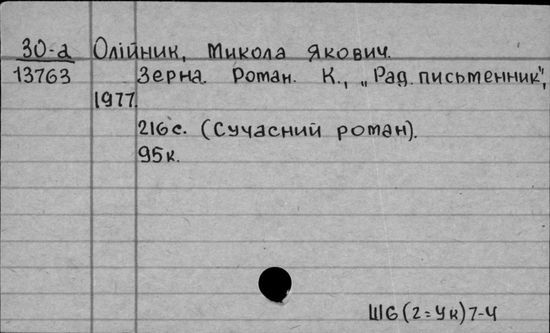 30-а Олійник, Микола Якович.
13763 Зерна. Роман. К., „Рад. письменник",
1977.
216 с. (Сучасний роман).
95к.
Ш6(2=Ук)7-4